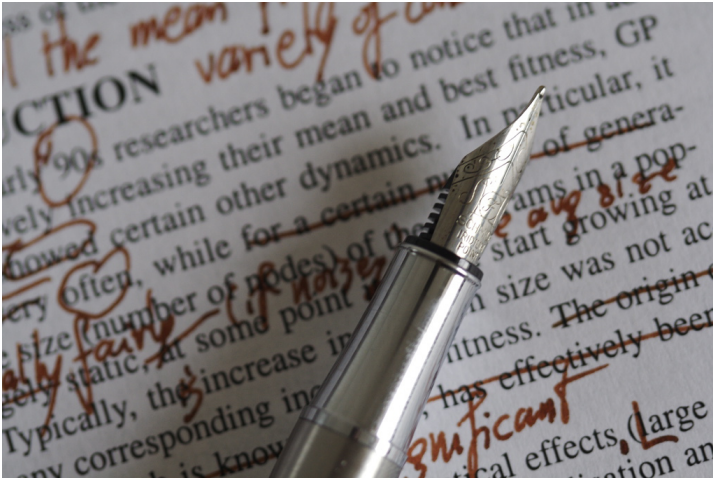 the mean
variety of
UCTION
arly 90s researchers began to notice that in
vely increasing their mean and best fitness, GP
howed certain other dynamics. In particular, it
ery often, while for a certain of genera-
e size (number of nodes) of the ams in a pop-
avg size
(if noise
ally fairly
gely static, at some point start growing at
Typically, the increase in size was not ac
any corresponding inc itness. The origin
is know , has effectively been
gnificant
tical effects, (Large